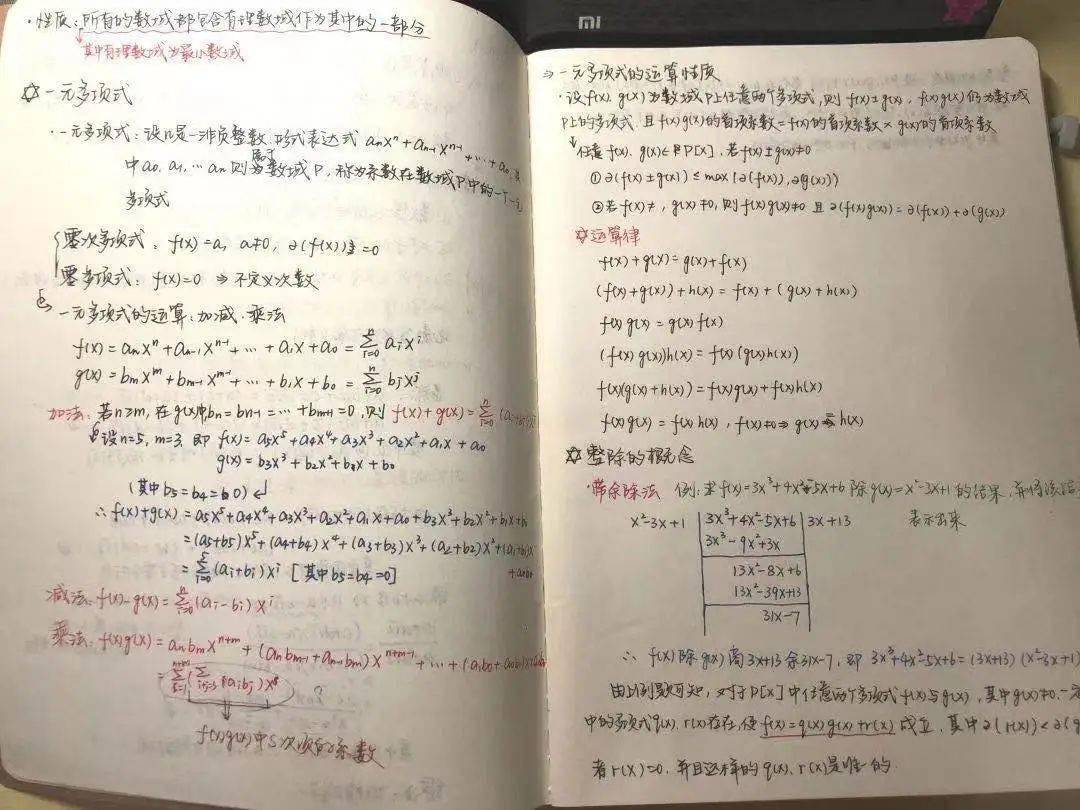 ·性质:所有的数域都包含有理数域作为其中的一部分
其中有理数域为最小数域
☆一元多项式
·一元多项式:设n是一非负整数.形式表达式 aₙxⁿ+aₙ₋₁xⁿ⁻¹+…+a₀,其
中a₀,a₁,…aₙ 属于数域P,称为系数在数域P中的一个一元
多项式
零次多项式:f(x)=a, a≠0, ∂(f(x))=0
零多项式:f(x)=0 ⇒不定义次数
一元多项式的运算:加减.乘法
f(x)=aₙxⁿ+aₙ₋₁xⁿ⁻¹+…+a₁x+a₀=∑ⁿᵢ₌₀ aᵢxⁱ
g(x)=bₘxᵐ+bₘ₋₁xᵐ⁻¹+…+b₁x+b₀=∑ bⱼxʲ
加法:若n≥m,在g(x)中bₙ=bₙ₋₁=…+bₘ₊₁=0,则f(x)+g(x)=∑ⁿᵢ₌₀(aᵢ+bᵢ)xⁱ
设n=5, m=3, 即 f(x)=a₅x⁵+a₄x⁴+a₃x³+a₂x²+a₁x+a₀
g(x)=b₃x³+b₂x²+b₁x+b₀
(其中b₅=b₄=0)
∴f(x)+g(x)=a₅x⁵+a₄x⁴+a₃x³+a₂x²+a₁x+a₀+b₃x³+b₂x²+b₁x+b₀
=(a₅+b₅)x⁵+(a₄+b₄)x⁴+(a₃+b₃)x³+(a₂+b₂)x²+(a₁+b₁)x
+a₀+b₀
=∑⁵ᵢ₌₀(aᵢ+bᵢ)xⁱ [其中b₅=b₄=0]
减法:f(x)-g(x)=∑ⁿᵢ₌₀(aᵢ-bᵢ)xⁱ
乘法:f(x)g(x)=aₙbₘxⁿ⁺ᵐ+(aₙbₘ₋₁+aₙ₋₁bₘ)xⁿ⁺ᵐ⁻¹+…+(a₁b₀+a₀b₁)x+a₀b₀
=∑(∑ᵢ₊ⱼ₌ₛ aᵢbⱼ)xˢ
f(x)g(x)中s次项的系数
mi
⇒一元多项式的运算性质
·设f(x).g(x)为数域P上任意两个多项式,则f(x)±g(x), f(x)g(x)仍为数域
P上的多项式.且f(x)g(x)的首项系数=f(x)的首项系数×g(x)的首项系数
任意f(x).g(x)∈P[x],若f(x)±g(x)≠0
①∂(f(x)±g(x))≤max(∂(f(x)),∂(g(x)))
②若f(x)≠, g(x)≠0,则f(x)g(x)≠0 且∂(f(x)g(x))=∂(f(x))+∂(g(x))
☆运算律
f(x)+g(x)=g(x)+f(x)
(f(x)+g(x))+h(x)=f(x)+(g(x)+h(x))
f(x)g(x)=g(x)f(x)
(f(x)g(x))h(x)=f(x)(g(x)h(x))
f(x)(g(x)+h(x))=f(x)g(x)+f(x)h(x)
f(x)g(x)=f(x)h(x), f(x)≠0⇒g(x)=h(x)
☆整除的概念
·带余除法 例:求f(x)=3x³+4x²-5x+6除g(x)=x²-3x+1的结果,并将该结
表示出来
x²-3x+1 | 3x³+4x²-5x+6 | 3x+13
3x³-9x²+3x
13x²-8x+6
13x²-39x+13
31x-7
∴f(x)除g(x)商3x+13余31x-7,即 3x³+4x²-5x+6=(3x+13)(x²-3x+1)
由此例题可知,对于P[x]中任意两个多项式f(x)与g(x),其中g(x)≠0.一定
中的多项式q(x).r(x)存在,使f(x)=q(x)g(x)+r(x)成立,其中∂(r(x))<∂(g
者r(x)=0.并且这样的q(x).r(x)是唯一的.